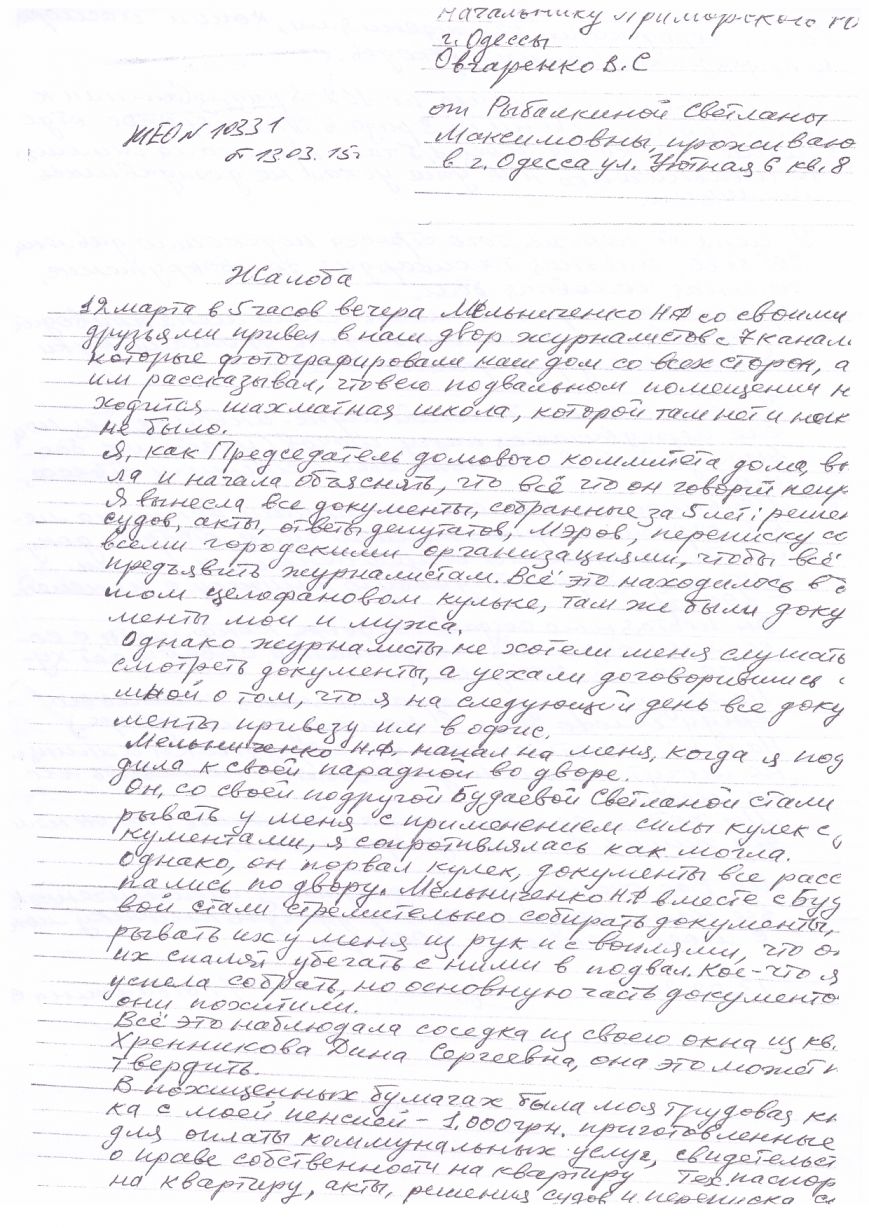 начальнику Приморского
г. Одессы
Овчаренко В.С
от Рыбалкиной Светланы
Максимовны, проживаю
в г. Одесса ул. Уютная 6 кв. 8
ЖЕО N 10331
от 13 03. 15г
Жалоба
12 марта в 5 часов вечера Мельниченко Н.Ф со своими
друзьями привел в наш двор журналистов с 7 канал
которые фотографировали наш дом со всех сторон, а
им рассказывал, что в его подвальном помещении н
ходится шахматная школа, которой там нет и ник
не было.
Я, как Председатель домового коммитета дома, вы
ла и начала объяснять, что всё что он говорит непр
Я вынесла все документы, собранные за 5 лет: решен
судов, акты, ответы депутатов, Мэров, переписку со
всеми городскими организациями, чтобы всё
предъявить журналистам. Всё это находилось в б
шом целофановом кульке, там же были доку
менты мои и мужа.
Однако журналисты не хотели меня слушать
смотреть документы, а уехали договорившись с
мной о том, что я на следующий день все доку
менты привезу им в офис.
Мельниченко Н.Ф. напал на меня, когда я под
дила к своей парадной во дворе.
Он, со своей подругой Будаевой Светланой стали
рывать у меня с применением силы кулек с
кументами, я сопротивлялась как могла.
Однако, он порвал кулек, документы все расс
пались по двору. Мельниченко Н.Ф вместе с Буд
вой стали стремительно собирать документы,
рывать их у меня из рук и с воплями, что он
их спалят убегать с ними в подвал. Кое-что я
успела собрать, но основную часть документо
они похитили.
Всё это наблюдала соседка из своего окна из кв.
Хренникова Дина Сергеевна, она это может п
твердить.
В похищенных бумагах была моя трудовая кн
ка с моей пенсией - 1.000грн. приготовленные
для оплаты коммунальных услуг, свидетельст
о праве собственности на квартиру Техпаспор
на квартиру, акты, решения судов и переписка с